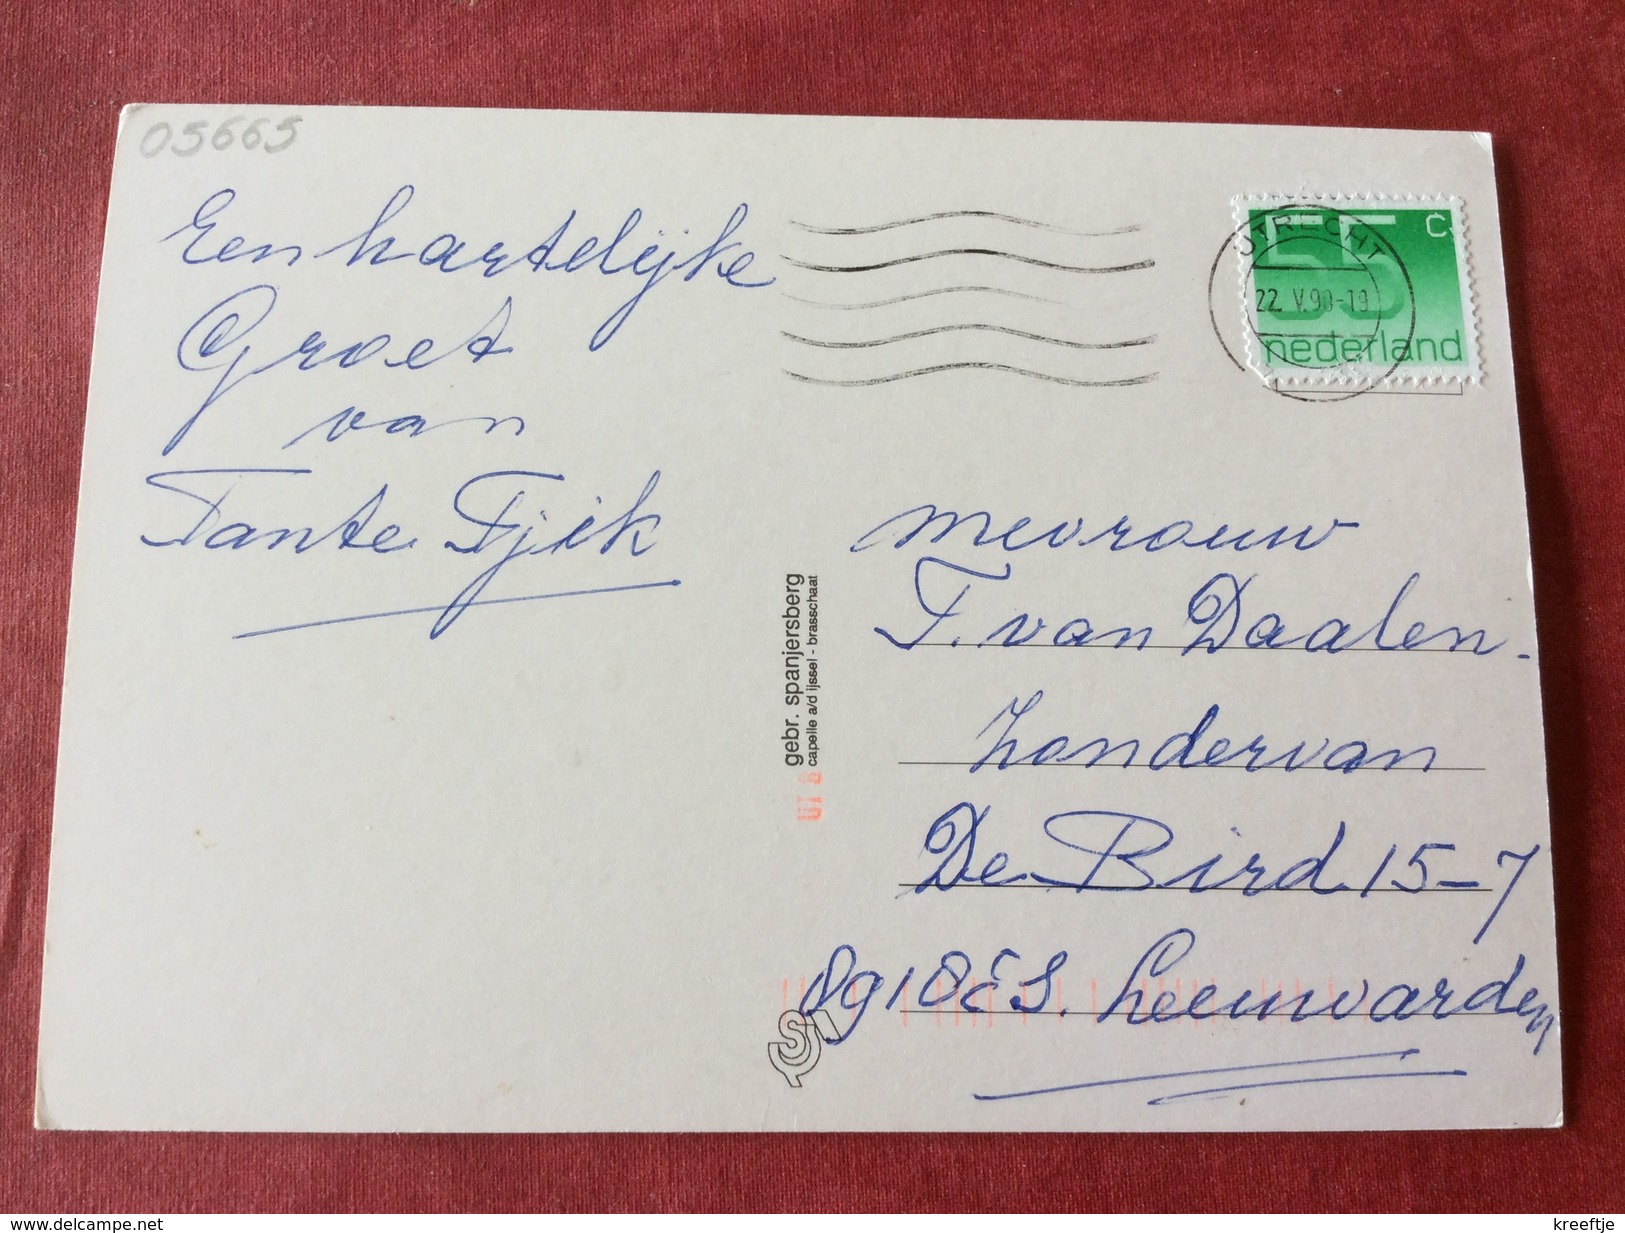 05665
Een hartelijke
Groet
van
Tante Tjik
UTRECHT
22. V.90-19
55 c
nederland
gebr. spanjersberg
capelle a/d ijssel - brasschaat
mevrouw
T. van Daalen.
Zondervan
De Bird 15-7
8918 ES. Leeuwarden
www.delcampe.net
kreeftje